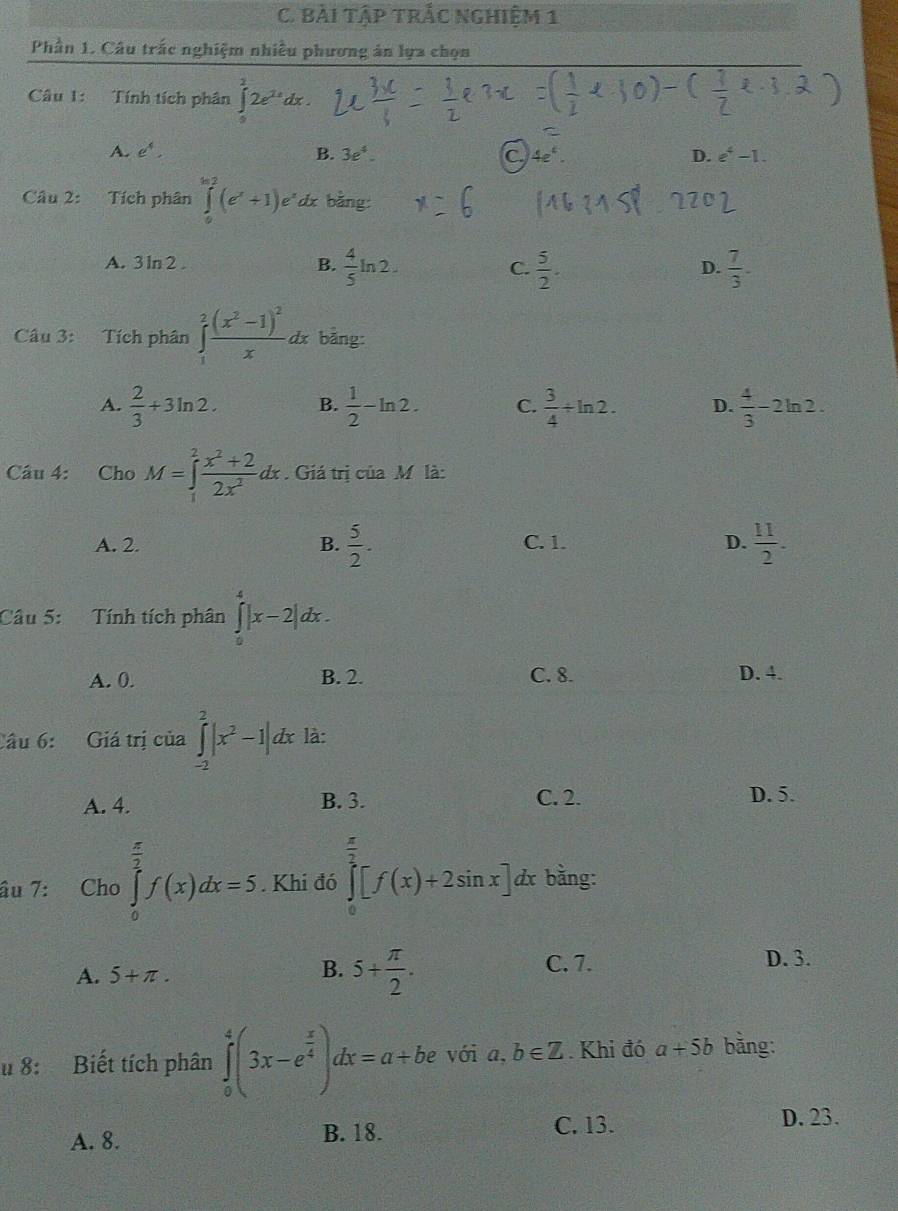 C. BÀI TẬP TRẮC NGHIỆM 1
Phần 1. Câu trắc nghiệm nhiều phương án lựa chọn
Câu 1: Tính tích phân ∫₀² 2e²ˣ dx.
A. e⁴. B. 3e⁴. C. 4e⁴. D. e⁴ − 1.
Câu 2: Tích phân ∫₀^(ln 2) (eˣ + 1)eˣ dx bằng: x = 6
A. 3 ln 2. B. 4/5 ln 2. C. 5/2. D. 7/3.
Câu 3: Tích phân ∫₁² (x² − 1)²/x dx bằng:
A. 2/3 + 3 ln 2. B. 1/2 − ln 2. C. 3/4 + ln 2. D. 4/3 − 2 ln 2.
Câu 4: Cho M = ∫₁² (x² + 2)/(2x²) dx. Giá trị của M là:
A. 2. B. 5/2. C. 1. D. 11/2.
Câu 5: Tính tích phân ∫₀⁴ |x − 2| dx.
A. 0. B. 2. C. 8. D. 4.
Câu 6: Giá trị của ∫₋₂² |x² − 1| dx là:
A. 4. B. 3. C. 2. D. 5.
âu 7: Cho ∫₀^(π/2) f(x) dx = 5. Khi đó ∫₀^(π/2) [f(x) + 2 sin x] dx bằng:
A. 5 + π. B. 5 + π/2. C. 7. D. 3.
u 8: Biết tích phân ∫₀⁴ (3x − e^(x/4)) dx = a + be với a, b ∈ Z. Khi đó a + 5b bằng:
A. 8. B. 18. C. 13. D. 23.